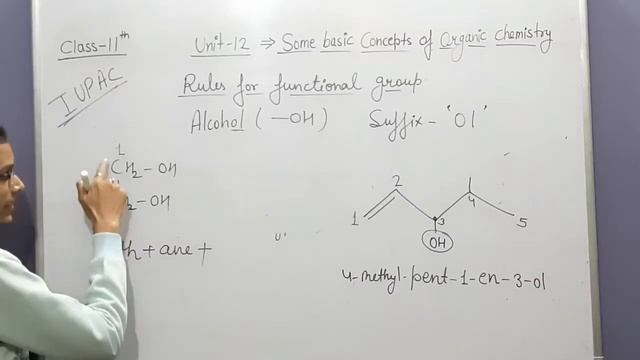 Class-11th
Unit-12 ⇒ Some basic Concepts of Organic chemistry
IUPAC
Rules for functional group
Alcohol (—OH) Suffix - 'Ol'
1
CH2-OH
2-OH
h + ane +
1
2
3
4
5
OH
4-methyl-pent-1-en-3-ol